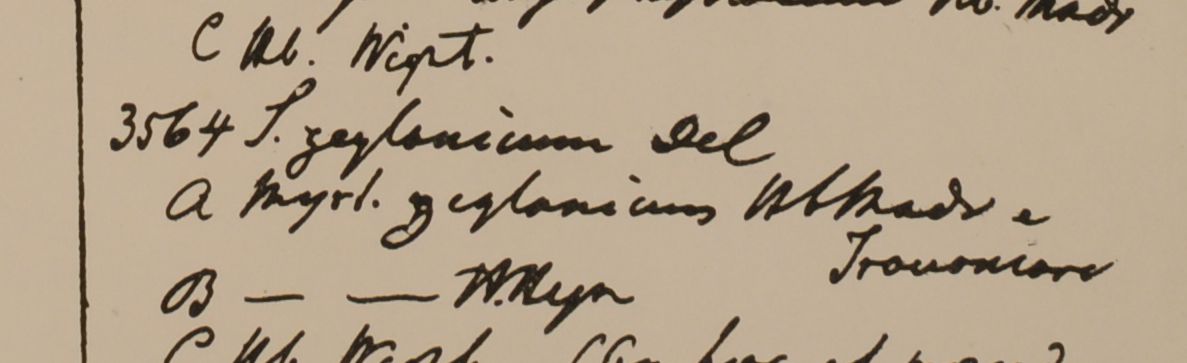 Hb. Madr
C Hb. Wight.
3564 S. zeylanicum Del
A Myrt. zeylanicum Hb Madr e
Travancore
B — — H. Heyn
C Hb. Wight